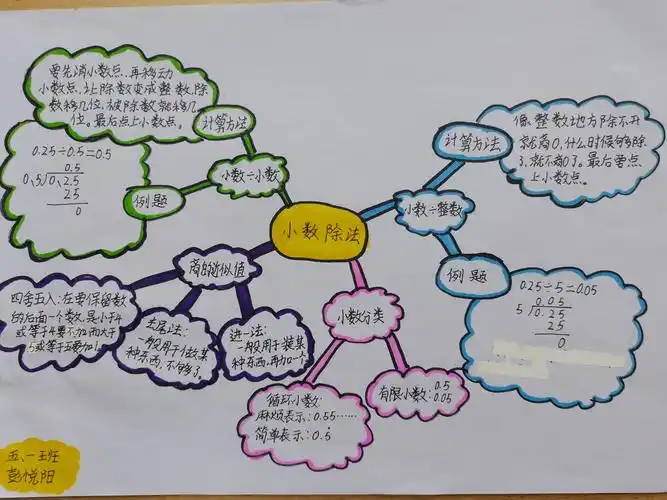 小数除法
小数÷小数
计算方法
要先消小数点,再移动
小数点,让除数变成整数,除
数移几位,被除数就移几
位。最后点上小数点。
例题
0.25÷0.5=0.5
0.5
0.5 0.2.5
25
0
小数÷整数
计算方法
像整数地方除不开
就商0,什么时候够除
了,就不商0了。最后要点
上小数点。
例题
0.25÷5=0.05
0.05
5 0.25
25
0
商的近似值
四舍五入:在要保留数
的后面一个数,是小于4
或等于4要不加而大于
5或等于五要加1。
去尾法:
一般用于做某
种东西,不够了。
进一法:
一般用于装某
种东西,再加一个
小数分类
循环小数:
麻烦表示:0.55……
简单表示:0.5̇
有限小数:0.5
0.05
五、一班
彭悦阳